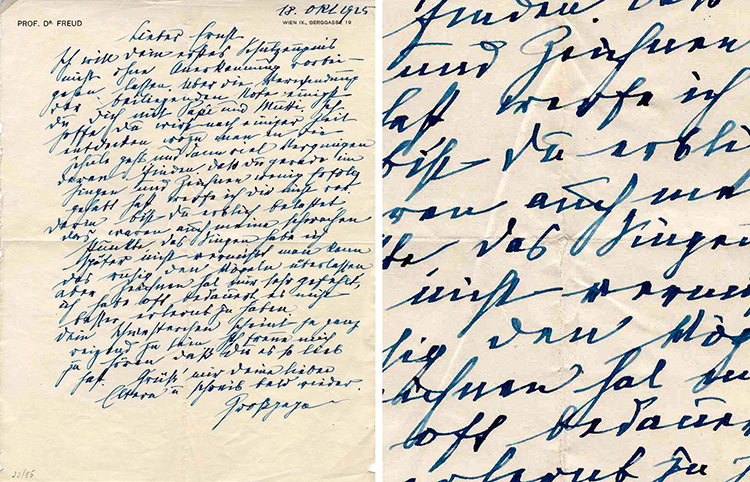 18. Okt. 1925
PROF. DR. FREUD
WIEN IX., BERGGASSE 19
Lieber Ernst
Ich will dein erstes Schulzeugnis
nicht ohne Anerkennung vorbei-
gehen lassen. Über die Verwendung
der beiliegenden Note einigst
du dich mit Papa und Mutti. Ich
hoffe du wirst nach einiger Zeit
entdecken wozu man in die
Schule geht und dann viel Vergnügen
daran finden. Daß du gerade im
Singen und Zeichnen wenig Erfolg
gehabt hast werfe ich dir nicht vor
darin bist du erblich belastet
das waren auch meine schwachen
Punkte das Singen habe ich
später nicht vermißt man kann
das ruhig den Vögeln überlassen
aber Zeichnen hat mir sehr gefehlt,
ich habe oft bedauert es nicht
besser erlernt zu haben.
Dein Schwesterchen scheint ja ganz
reizend zu sein ich freue mich
zu hören daß du es so lieb
hast. Grüß mir deine lieben
Eltern u schreib bald wieder.
Großpapa
finden. Da
und Zeichnen
hast werfe ich
bist du erbli
ren auch me
te das Singe
nicht verm
hig den Vög
ichnen hat m
oft bedauer
erlernt zu